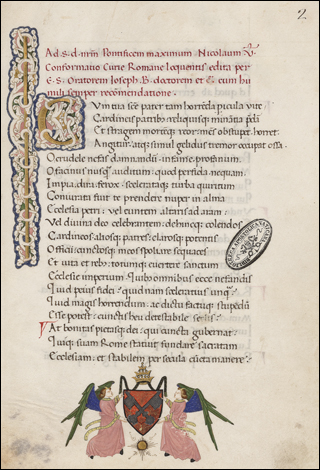 2
Ad. s. d. nr̄m Pontificem maximum Nicolaum V.
Conformatio Curie Romane loquentis edita per
E. S. Oratorem Joseph. B. doctorem et C. cum hu
mili semper recōmendatione.
Quū tua scē̄ pater tam horrēda pīcula vite
Cardineis patrībus reliquisque
Et stragem mortēque
Angitur atque simul gelidus tremor occupat ossa.
O crudele nefas damnandū infame profanum.
O facinus nusquā auditum quod perfida nequam.
Impia dira ferox scelerataque turba quiritum
Coniurata fuit te prendere nuper in alma
Ecclesia petri vel euntem altaria ad aram
Vel diuina deo celebrantem dehincque colendos
Cardineos aliosque patres clarosque potentis
Officii cunctosque tuos spoliare sequaces
Et vita et rebus totumque euertere sanctum
Ecclesie imperium
Quid peius fides quod nam sceleratius unquā
Quid magis horrendum ac dictu factuque stupēdū
Esse potest cunctis heu detestabile seclis
At bonitas pietasque dei qui cuncta gubernat
Quique suam Rome statuit fundare sacratam
Ecclesiam et stabilem per secula cūcta manere